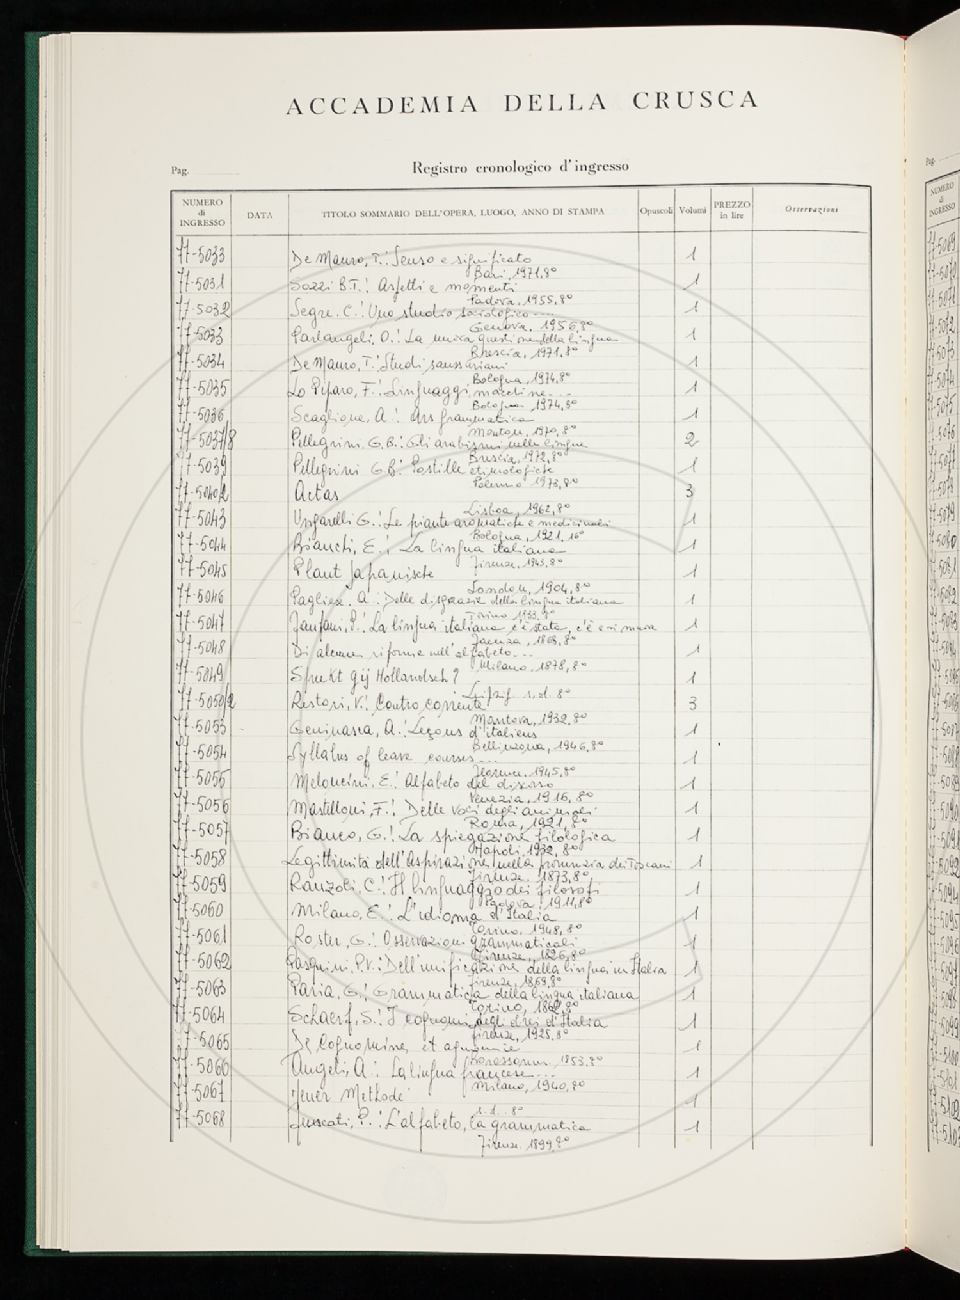 ACCADEMIA DELLA CRUSCA
Pag.
Registro cronologico d'ingresso
NUMERO di INGRESSO DATA TITOLO SOMMARIO DELL'OPERA, LUOGO, ANNO DI STAMPA Opuscoli Volumi PREZZO in lire Osservazioni
77-5033 De Mauro, T.: Senso e significato 1
Bari, 1971, 8°
77-5031 Sozzi B.T.: Aspetti e momenti 1
Padova, 1955, 8°
77-5032 Segre, C.: Uno studio sociologico.... 1
Genova, 1956, 8°
77-5033 Parlangeli, O.: La nuova questione della lingua 1
Brescia, 1971, 8°
77-5034 De Mauro, T.: Studi saussuriani 1
Bologna, 1974, 8°
77-5035 Lo Piparo, F.: Linguaggi, macchine.... 1
Bologna 1974, 8°
77-5036 Scaglione, A.: Ars grammatica 1
Mouton, 1970, 8°
77-5037/8 Pellegrini, G.B.: Gli arabismi nelle lingue 2
Brescia, 1972, 8°
77-5039 Pellegrini G.B.: Postille etimologiche 1
Palermo 1973, 8°
77-5040/2 Actas 3
Lisboa, 1962, 8°
77-5043 Ungarelli G.: Le piante aromatiche e medicinali 1
Bologna, 1921, 16°
77-5044 Bianchi, E.: La lingua italiana 1
Firenze, 1943, 8°
77-5045 Plaut Japanische 1
London, 1904, 8°
77-5046 Pagliesi, A.: Delle disgrazie della lingua italiana 1
Torino 1933, 8°
77-5047 Fanfani, P.: La lingua italiana c'è stata, c'è e si muove 1
Faenza, 1868, 8°
77-5048 Di alcune riforme nell'alfabeto... 1
Milano, 1878, 8°
77-5049 Spreekt gij Hollandsch? 1
Leipzig s.d. 8°
77-5050/2 Restori, V.: Contro corrente 3
Mantova, 1932, 8°
77-5053 Geninasca, A.: Leçons d'italiens 1
Bellinzona, 1946, 8°
77-5054 Syllabus of leave courses... 1
Florence, 1945, 8°
77-5055 Meloncini, E.: Alfabeto del discorso 1
Venezia, 1916, 8°
77-5056 Mastelloni, F.: Delle voci degli animali 1
Roma, 1921, 8°
77-5057 Bianco, G.: La spiegazione filologica 1
Napoli, 1932, 8°
77-5058 Legittimità dell'Aspirazione nella pronunzia dei Toscani 1
Firenze, 1873, 8°
77-5059 Ranzoli, C.: Il linguaggio dei filosofi 1
Padova, 1911, 8°
77-5060 Milano, E.: L'idioma d'Italia 1
Torino, 1948, 8°
77-5061 Roster, G.: Osservazioni grammaticali 1
Firenze, 1826, 8°
77-5062 Pasquini, P.V.: Dell'unificazione della lingua in Italia 1
Firenze, 1869, 8°
77-5063 Paria, G.: Grammatica della lingua italiana 1
Torino, 1862, 8°
77-5064 Schaerf, S.: I cognomi degli ebrei d'Italia 1
Firenze, 1925, 8°
77-5065 De Cognomine, et agnomine 1
1853, 8°
77-5066 Angeli, A.: La lingua francese... 1
Milano, 1940, 8°
77-5067 Methode 1
s.d. 8°
77-5068 P.: L'alfabeto, la grammatica 1
Firenze, 1899, 8°